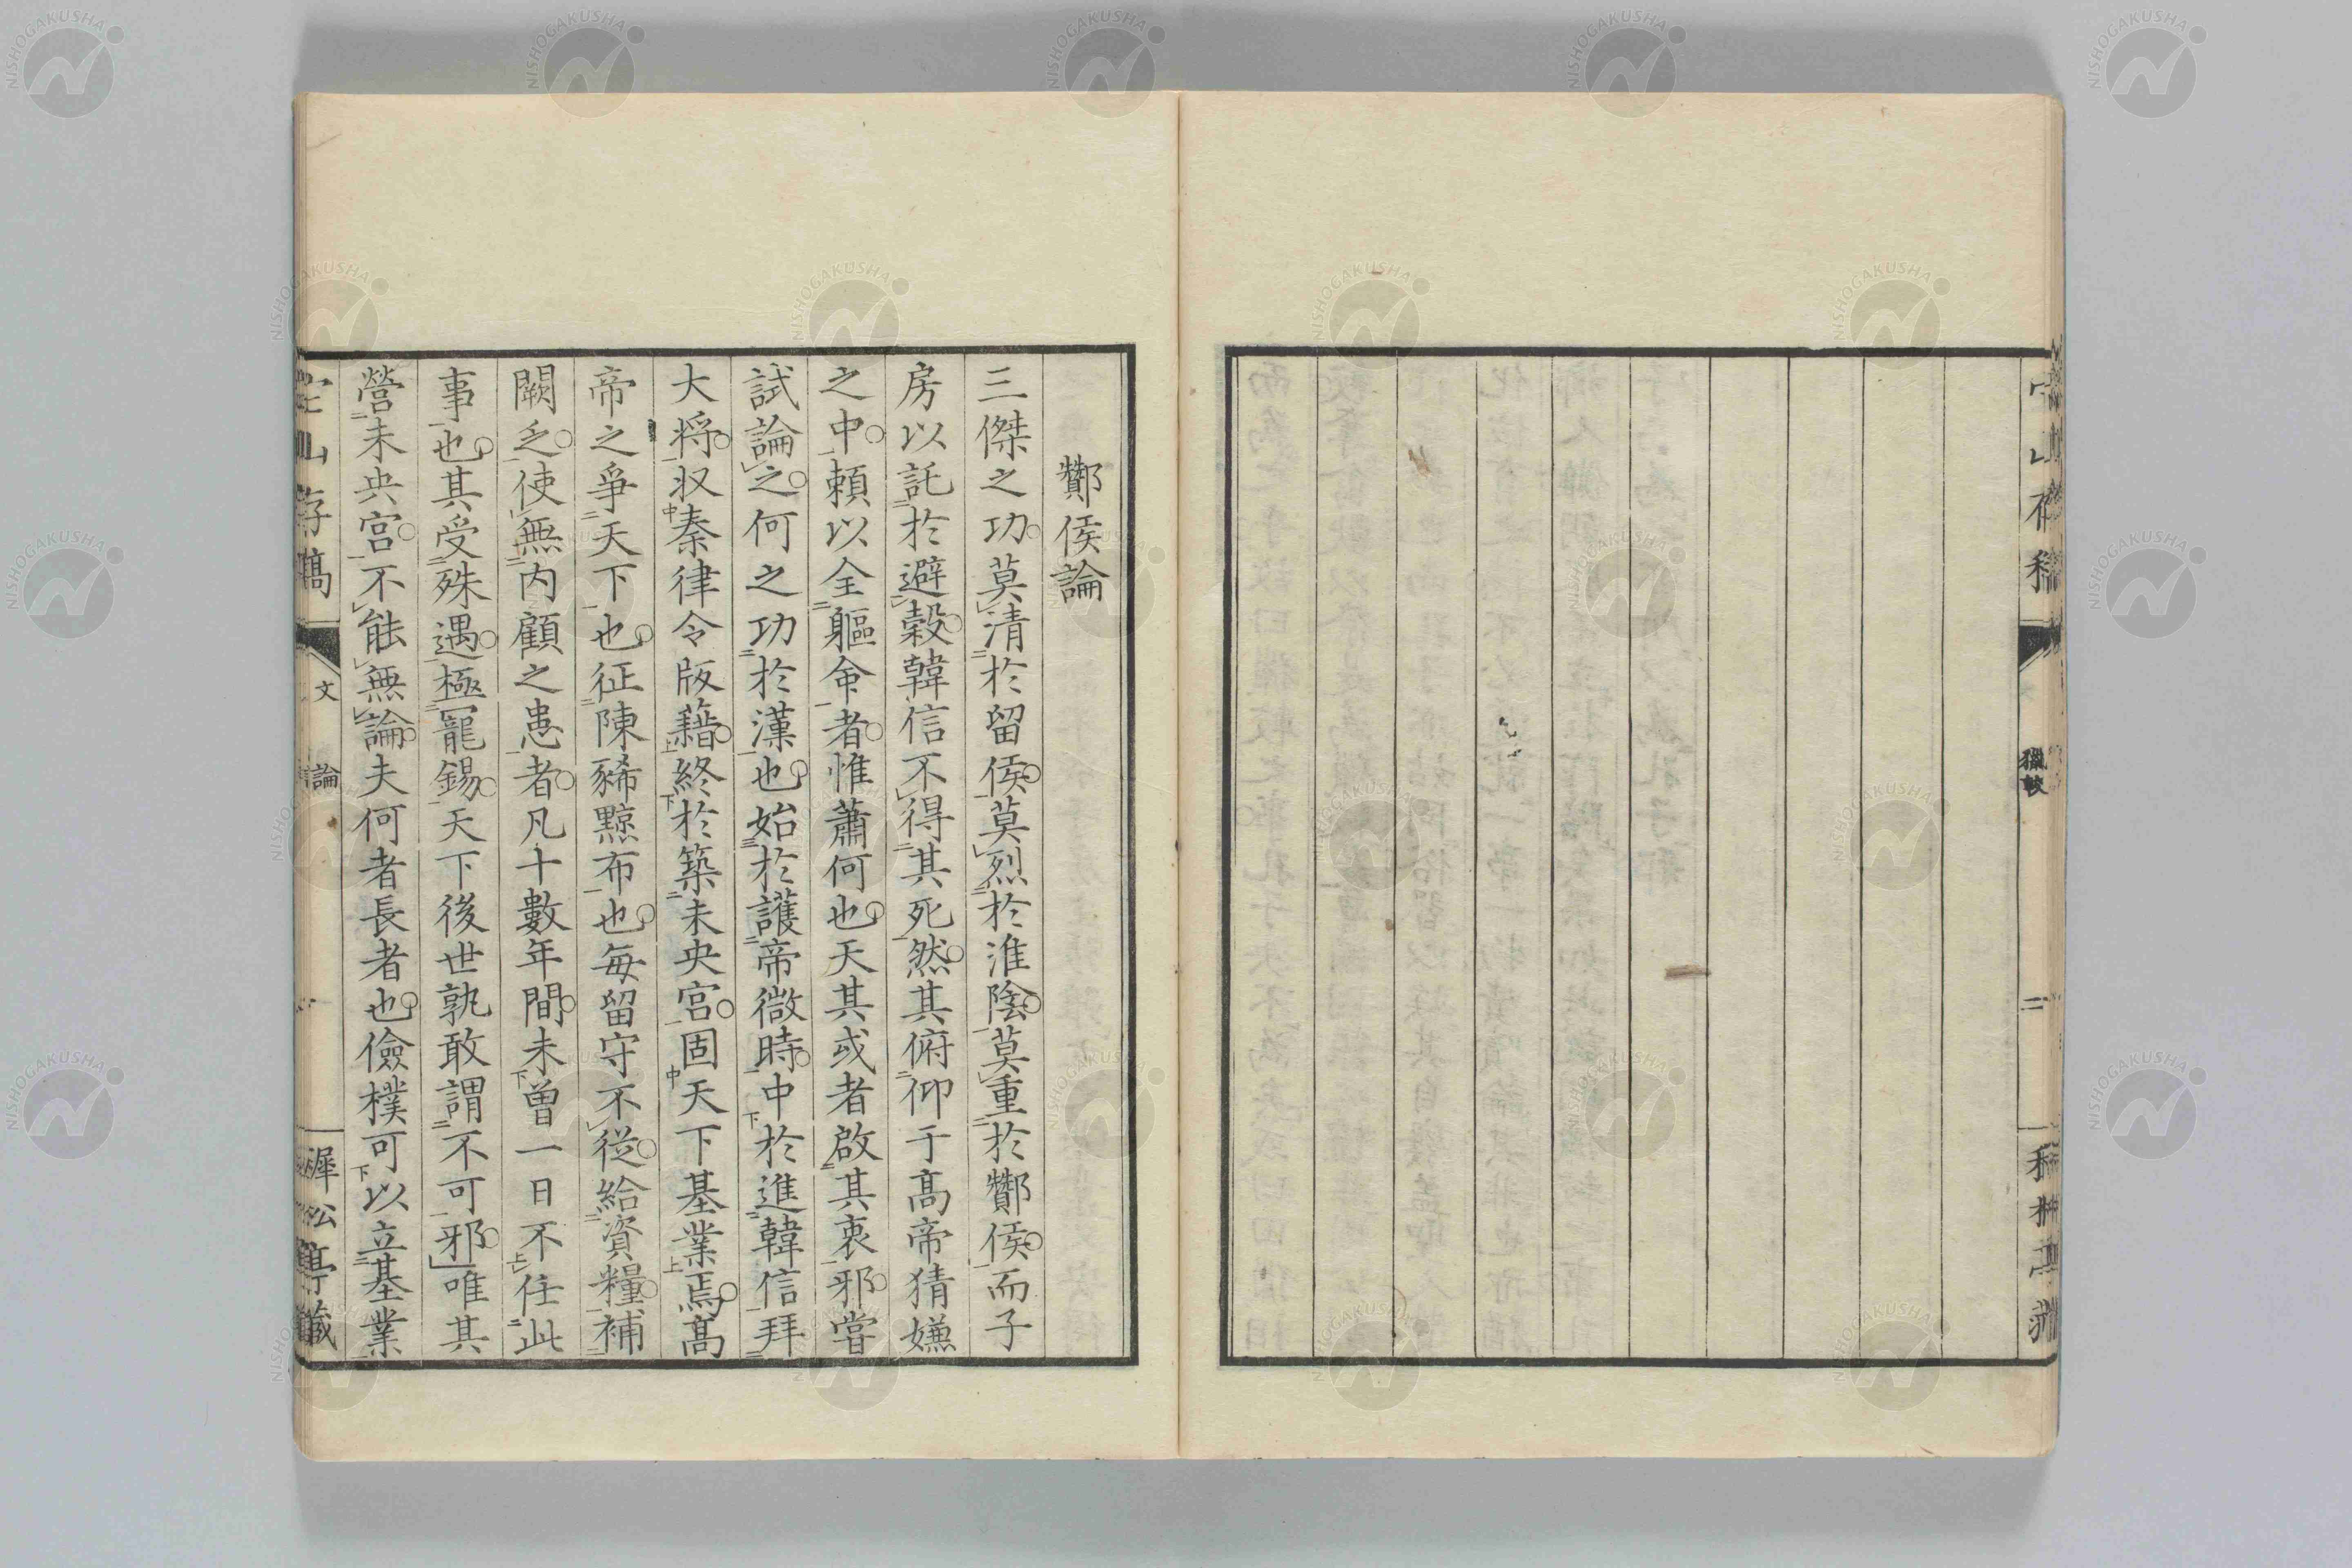 酇侯論
三傑之功莫清於留侯莫烈於淮陰莫重於酇侯而子
房以託於避穀韓信不得其死然其俯仰于高帝猜嫌
之中頼以全軀命者惟蕭何也天其或者啟其衷邪嘗
試論之何之功於漢也始於護帝微時中於進韓信拜
大将収秦律令版籍終於築未央宮固天下基業焉高
帝之爭天下也征陳豨黥布也每留守不從給資糧補
闕乏使無内顧之患者凡十數年間未曾一日不任此
事也其受殊遇極寵錫天下後世孰敢謂不可邪唯其
營未央宮不能無論夫何者長者也儉樸可以立基業
山存稿
文
論
松亭藏
獵較
二